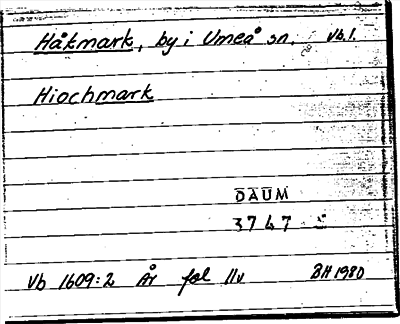 Håkmark, by i Umeå sn. Vb.l.
Hiochmark
DAUM
3747
Vb 1609:2 År fol 11v BH 1980